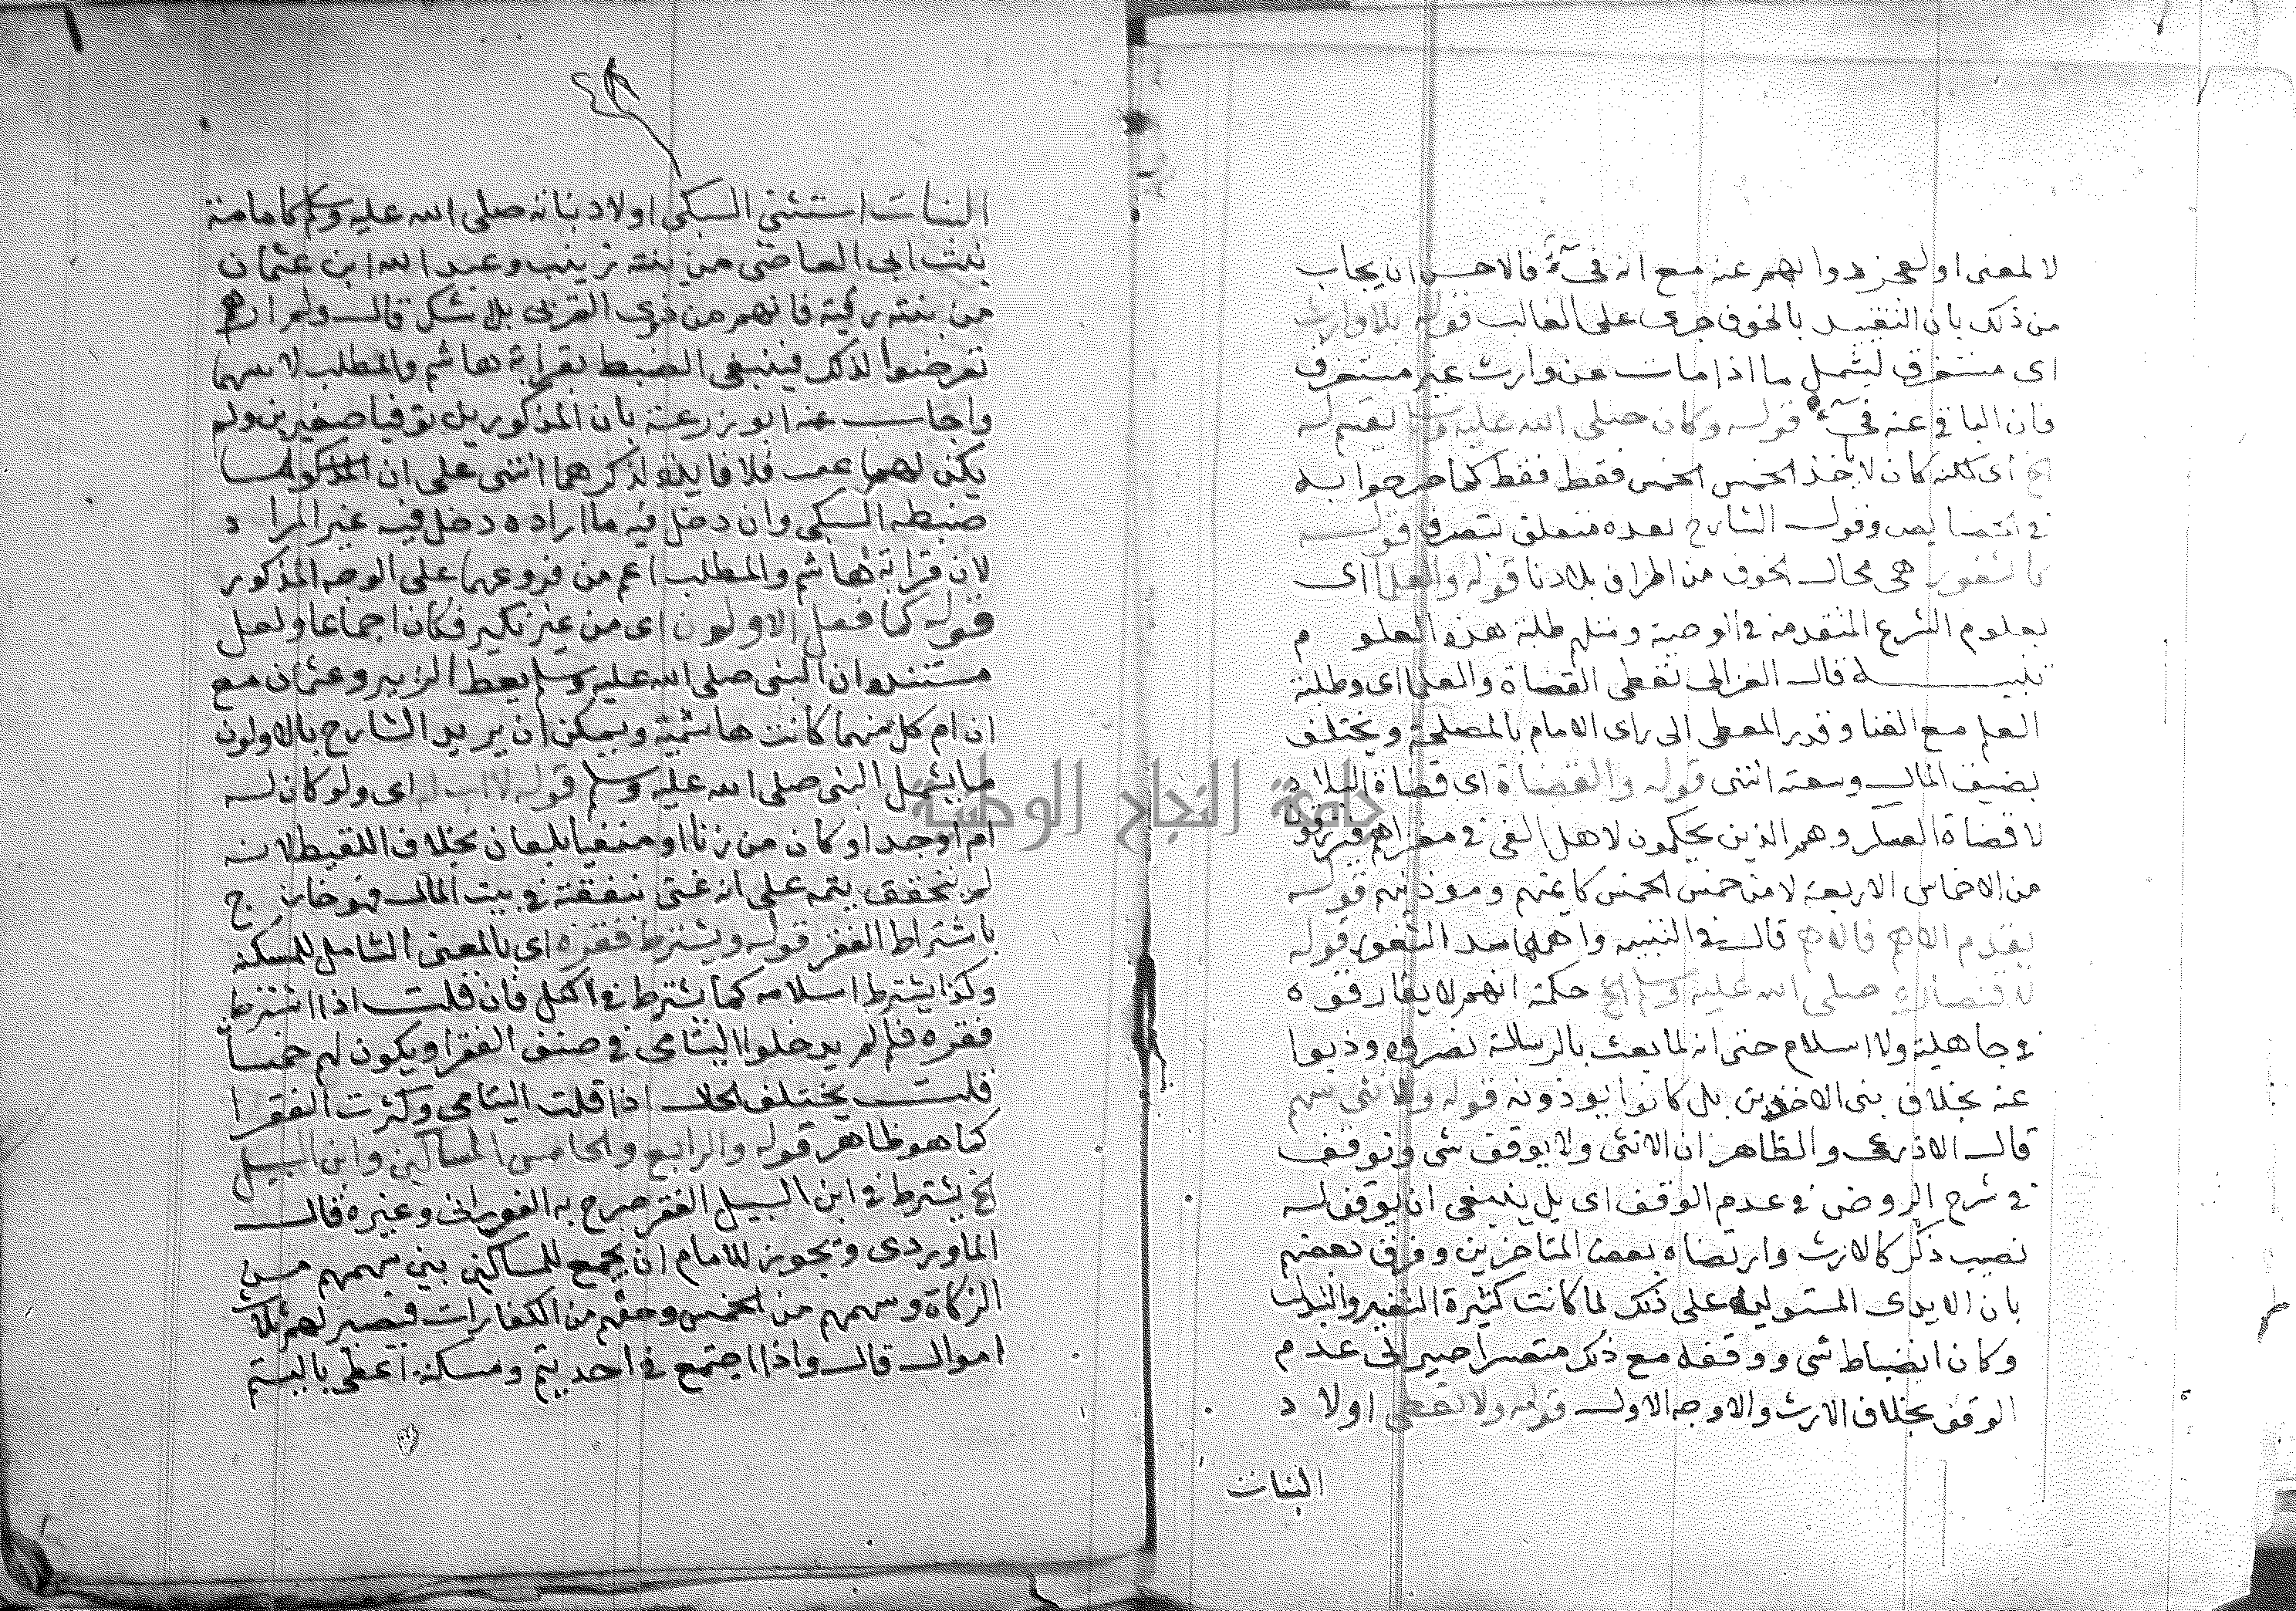 لا لمعنى او لعجز دوابهم عنه مع انه فيء فالاحسن ان يجاب
من ذلك بان التقييد بالخوف جرى على الغالب قوله بلا وارث
اى مستغرق ليشمل ما اذا مات عن وارث غير مستغرق
فان الباقي عنه فيء قوله وكان صلى الله عليه وسلم يقسم له
الخ اى لكنه كان لا ياخذ الخمس الخمس فقط فقط كما صرحوا به
في الخصايص وقول الشارح بعده متعلق بتصرف قوله
كالثغور هي محال الخوف من اطراف بلادنا قوله والعلما اى
بعلوم الشرع المتقدمة في الوصية ومثلهم طلبة هذه العلوم
تنبيه قال الغزالى تعطى القضاة والعلما اى وطلبة
العلم مع الغنا وقدر المعطى الى راى الامام بالمصلحة ويختلف
بضيق المال وسعته انتهى قوله والقضاة اى قضاة البلاد
لا قضاة العسكر وهم الذين يحكمون لاهل الفى في مغزاهم فيرزقون
من الاخماس الاربعة لا من خمس الخمس كايمتهم وموذنيهم قوله
يقدم الاهم فالاهم قال في التنبيه واهمها سد الثغور قوله
لاقتصاره صلى الله عليه وسلم الخ حكمته انهم لا يفارقوه
في جاهلية ولا اسلام حتى انه لما بعث بالرسالة نصروه وذبوا
عنه بخلاف بنى الاخرين بل كانوا يوذونه قوله وللانثى سهم
قال الاذرعى والظاهر ان الانثى ولا يوقف شى وتوقف
في شرح الروض في عدم الوقف اى بل ينبغى ان يوقف له
نصيب ذكر كالارث وارتضاه بعض المتاخرين وفرق بعضهم
بان الايدى المستولية على ذلك لما كانت كثيرة التغير والتبدل
وكان انضباط شى ووقفه مع ذلك متعسرا صير الى عدم
الوقف بخلاف الارث والاوجه الاول قوله ولا تعطى اولاد
البنات
البنات استثنى السبكى اولاد بناته صلى الله عليه وسلم كامامة
بنت ابى العاصى من بنته زينب وعبد الله ابن عثمان
من بنته رقية فانهم من ذوى القربى بلا شك قال ولم ارهم
تعرضوا لذلك فينبغى الضبط بقرابة هاشم والمطلب لا بنيهما
واجاب عنه ابو زرعة بان المذكورين توفيا صغيرين ولم
يكن لهما عقب فلا فايدة لذكرهما انتهى على ان
ضبطه السبكى وان دخل فيه ما اراده دخل فيه غير المراد
لان قرابة هاشم والمطلب اعم من فروعهما على الوجه المذكور
قوله كما فعل الاولون اى من غير نكير فكان اجماعا ولعل
مستنده ان النبى صلى الله عليه وسلم يعط الزبير وعثمان مع
ان ام كل منهما كانت هاشمية ويمكن ان يريد الشارح بالاولون
ما يشمل النبى صلى الله عليه وسلم قوله لا اب له اى ولو كان له
ام او جد او كان من زنا او منفيا بلعان بخلاف اللقيط لانه
لم نتحقق يتمه على انه غنى بنفقته في بيت المال فهو خارج
باشتراط الفقر قوله ويشترط فقره اى بالمعنى الشامل للمسكنة
وكذا يشترط اسلامه كما يشترط في الكل فان قلت اذا اشترط
فقره فلم لم يدخلوا اليتامى في صنف الفقرا ويكون لهم خمسا
قلت يختلف الحال اذا قلت اليتامى وكثرت الفقرا
كما هو ظاهر قوله والرابع والخامس المساكين وابن السبيل
الخ يشترط في ابن السبيل الفقر صرح به الفورانى وغيره قال
الماوردى ويجوز للامام ان يجمع للمساكين بين سهمهم من
الزكاة وسهمهم من الخمس وحقهم من الكفارات فيصير لهم ثلاث
اموال قال واذا اجتمع في احد يتم ومسكنة اعطى باليتم